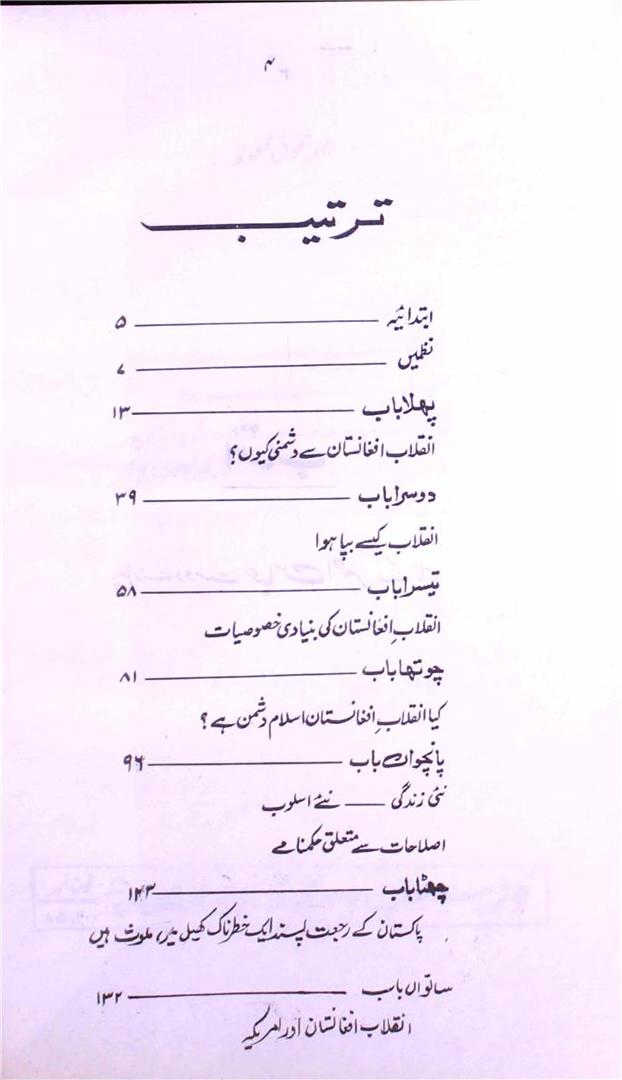 ۴
ترتیب
ابتدائیہ ۵
نظمیں ۷
پہلا باب ۱۳
انقلاب افغانستان سے دشمنی کیوں؟
دوسرا باب ۳۹
انقلاب کیسے بپا ہوا
تیسرا باب ۵۸
انقلابِ افغانستان کی بنیادی خصوصیات
چوتھا باب ۸۱
کیا انقلابِ افغانستان اسلام دشمن ہے؟
پانچواں باب ۹۶
نئی زندگی — نئے اسلوب
اصلاحات سے متعلق حکمنامے
چھٹا باب ۱۲۳
پاکستان کے رجعت پسند ایک خطرناک کھیل میں ملوث ہیں
ساتواں باب ۱۳۲
انقلاب افغانستان اور امریکہ